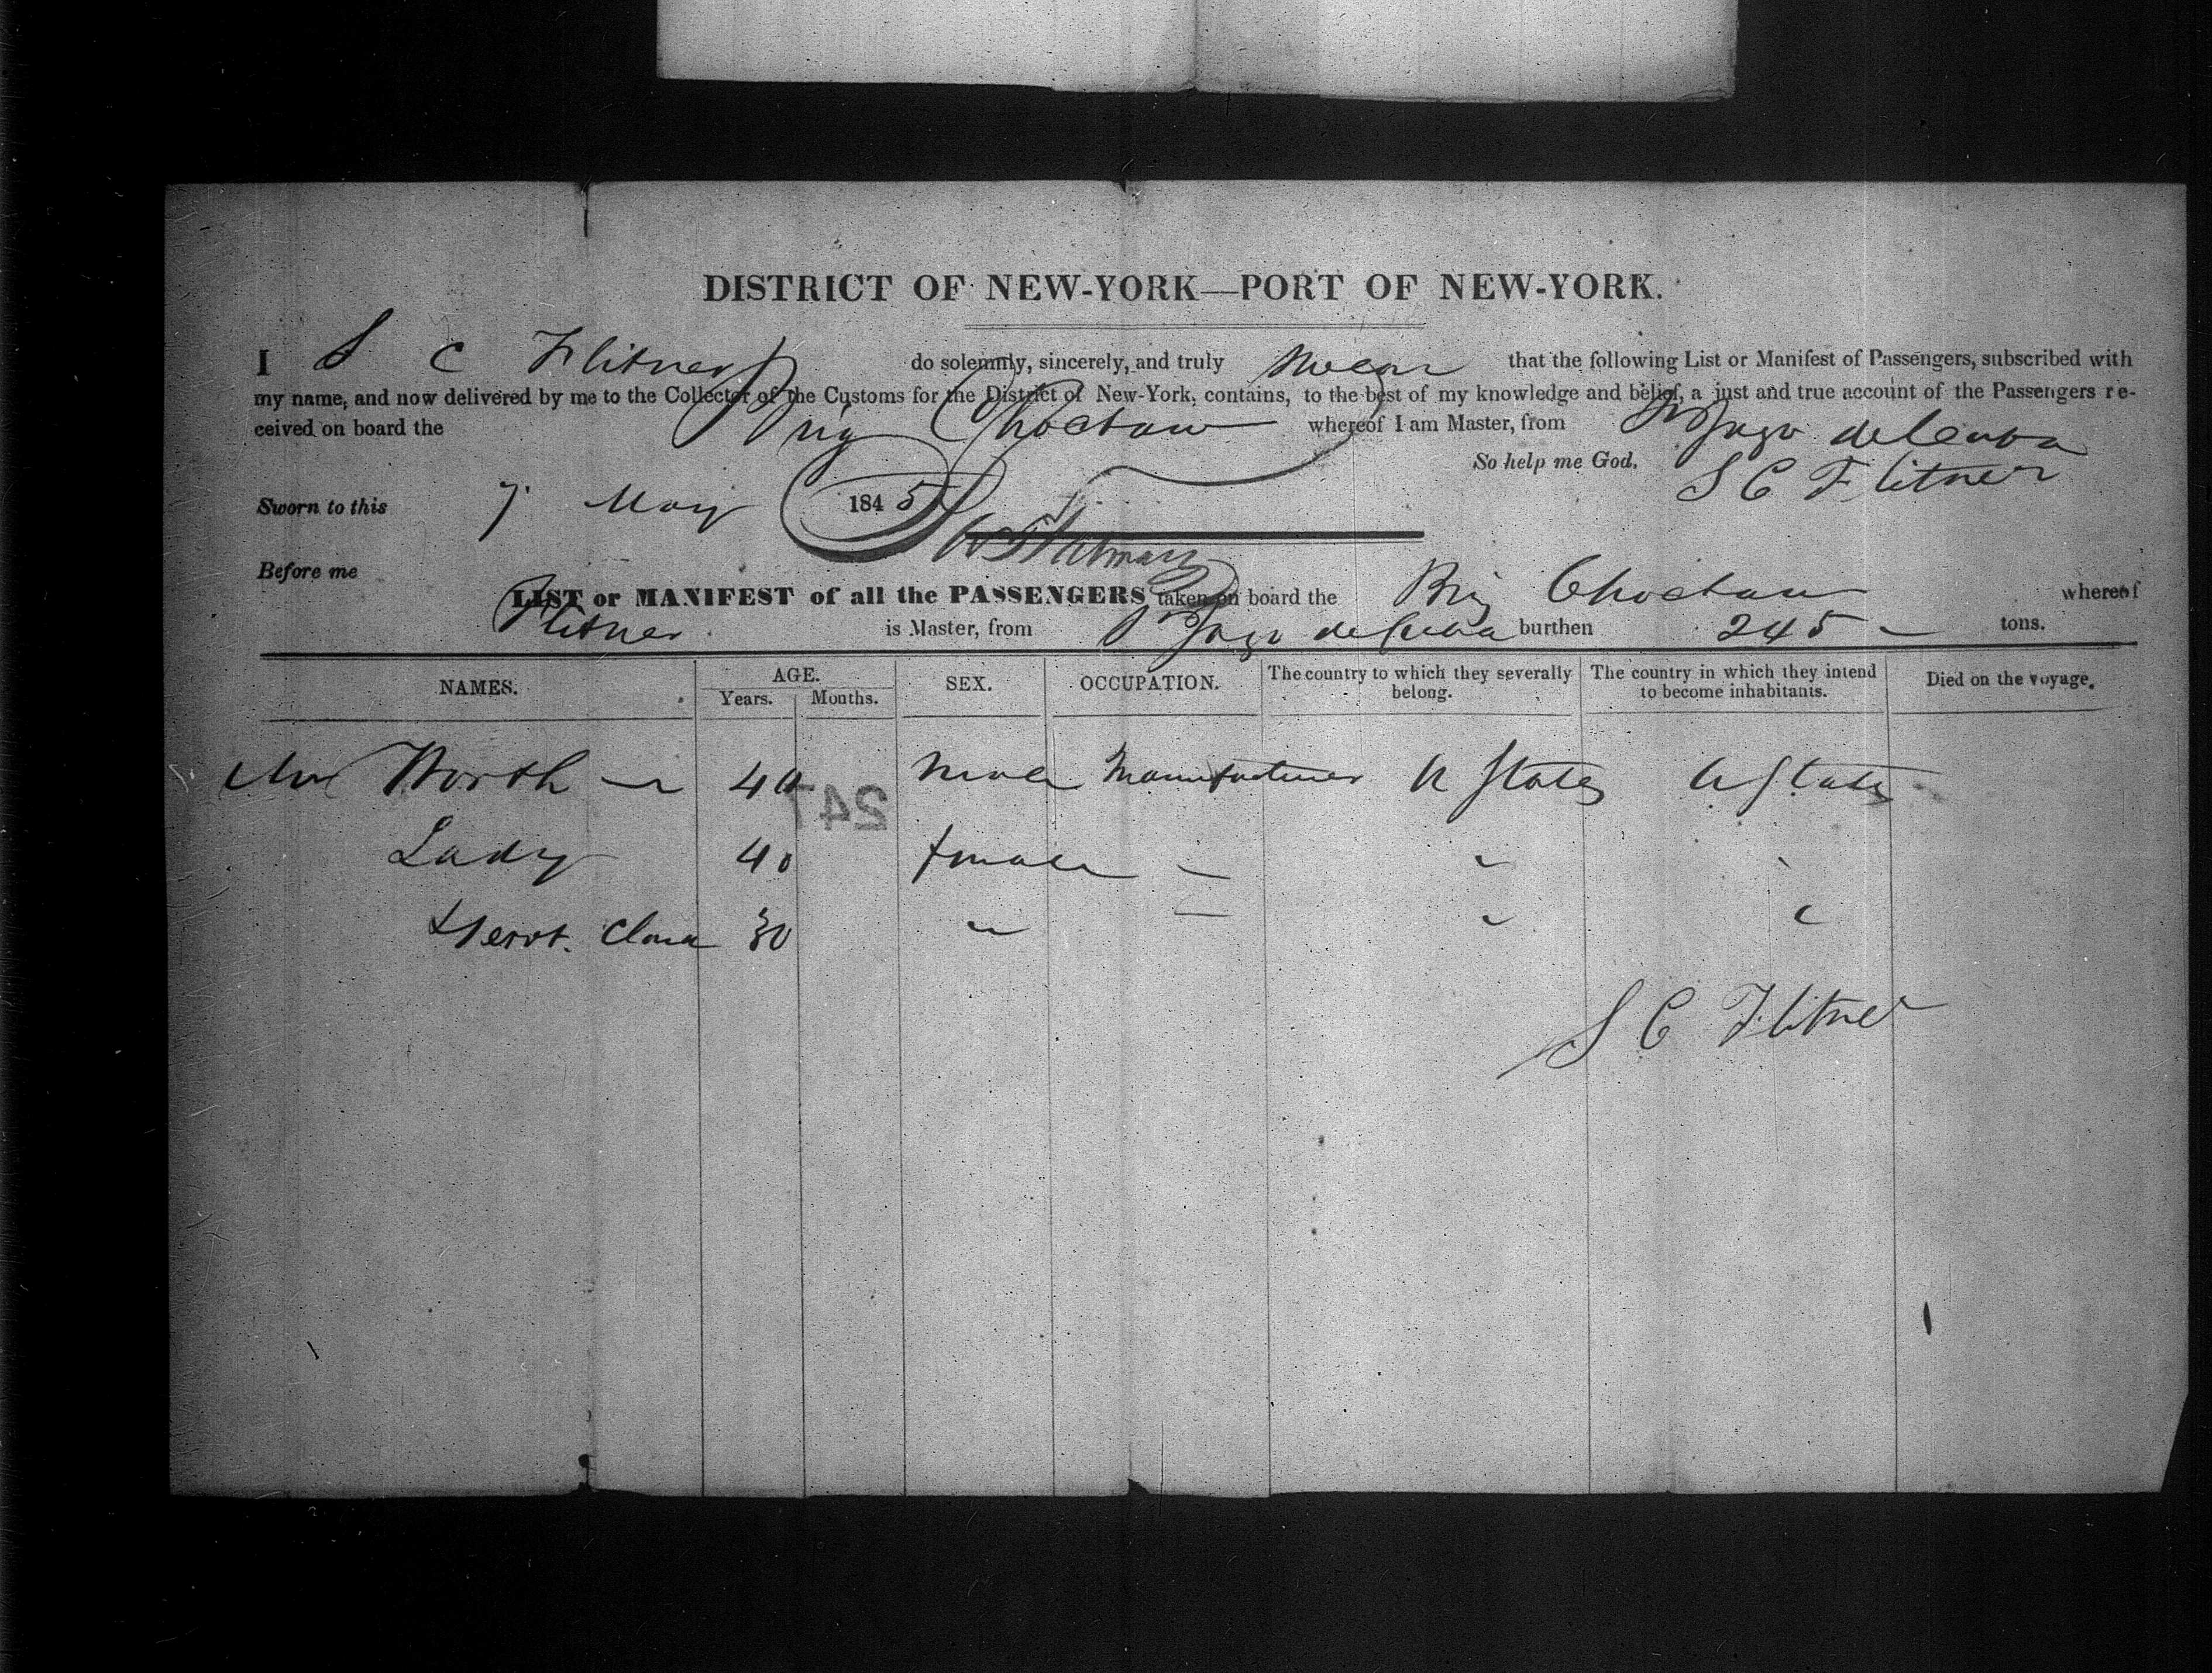 DISTRICT OF NEW-YORK—PORT OF NEW-YORK.
I S C Flitner do solemnly, sincerely, and truly Swear that the following List or Manifest of Passengers, subscribed with
my name, and now delivered by me to the Collector of the Customs for the District of New-York, contains, to the best of my knowledge and belief, a just and true account of the Passengers re-
ceived on board the Brig Choctaw whereof I am Master, from St Jago de Cuba
So help me God. S C Flitner
Sworn to this 7 May 1845
Before me
LIST or MANIFEST of all the PASSENGERS taken on board the Brig Choctaw whereof
Flitner is Master, from St Jago de Cuba burthen 245 tons.
NAMES. AGE. Years. Months. SEX. OCCUPATION. The country to which they severally belong. The country in which they intend to become inhabitants. Died on the voyage.
Mr North 40 male Manufacturer U States U States
247
Lady 40 female — " "
Servt. Clara 30 " — " "
S C Flitner